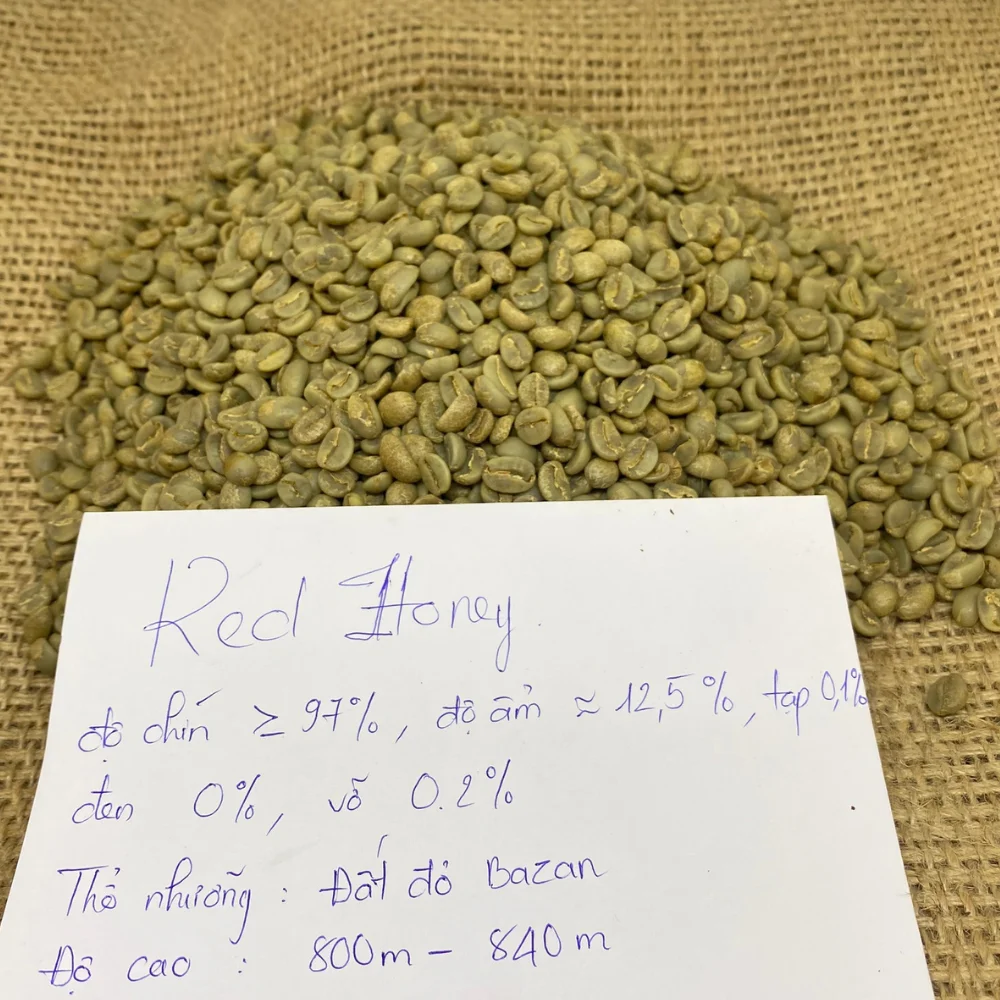 Red Honey
độ chín ≥ 97%, độ ẩm ≈ 12,5%, tạp 0,1%
đen 0%, vỡ 0.2%
Thổ nhưỡng : Đất đỏ Bazan
Độ cao : 800m - 840m